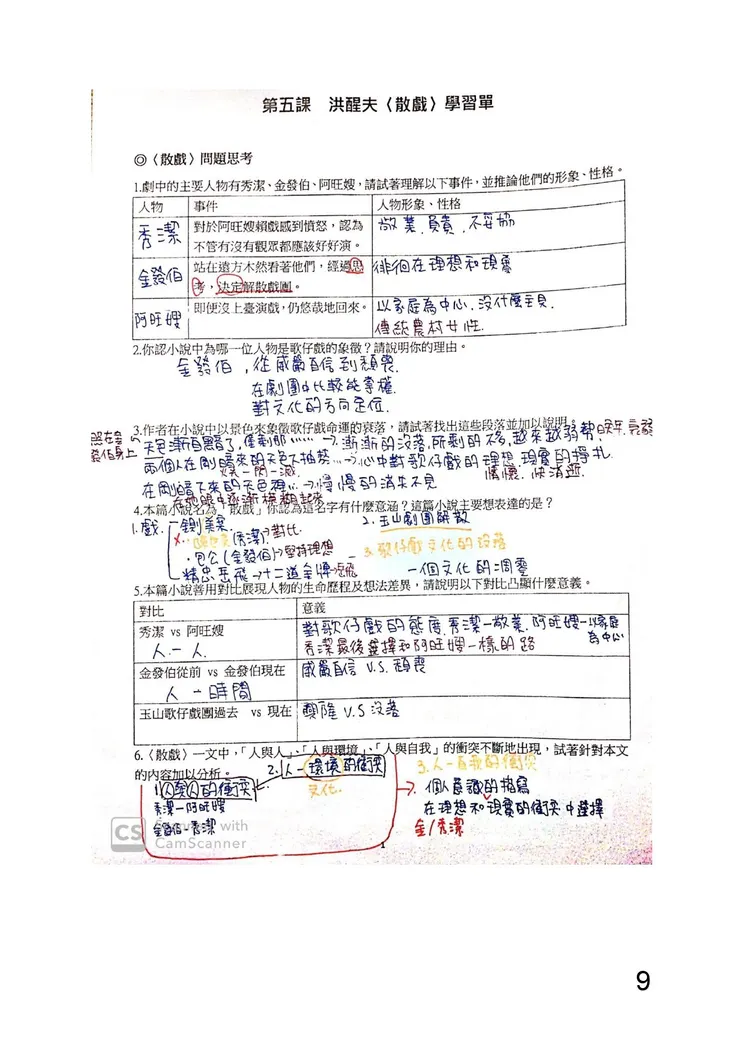 第五課 洪醒夫〈散戲〉學習單
◎〈散戲〉問題思考
1.劇中的主要人物有秀潔、金發伯、阿旺嫂,請試著理解以下事件,並推論他們的形象、性格。
人物 事件 人物形象、性格
秀潔 對於阿旺嫂賴戲感到憤怒,認為 敬業、負責、不妥協
不管有沒有觀眾都應該好好演。
金發伯 站在遠方木然看著他們,經過思 徘徊在理想和現實
考,決定解散戲團。
阿旺嫂 即便沒上臺演戲,仍悠哉地回來。 以家庭為中心、沒什麼主見、
傳統農村女性.
2.你認小說中為哪一位人物是歌仔戲的象徵?請說明你的理由。
金發伯,從威嚴自信到頹喪.
在劇團中比較能掌權.
對文化的方向定位.
3.作者在小說中以景色來象徵歌仔戲命運的衰落,請試著找出這些段落並加以說明。
照在金發伯身上
天色漸漸暗了,僅剩那……→漸漸的沒落,所剩的不多,越來越弱勢,晚年、衰弱
兩個人在剛暗來的天色下抽菸…→心中對歌仔戲的理想、現實的掙扎
火一閃一滅 情懷、快消逝.
在剛暗下來的天色裡…→慢慢的消失不見
在她眼中逐漸模糊起來
4.本篇小說名為「散戲」你認為這名字有什麼意涵?這篇小說主要想表達的是?
1.戲. 鍘美案 2.玉山劇團解散
(秀潔)→對比 3.歌仔戲文化的沒落
包公(金發伯)→堅持理想
精忠岳飛→十二道金牌 一個文化的凋零
5.本篇小說善用對比展現人物的生命歷程及想法差異,請說明以下對比凸顯什麼意義。
對比 意義
秀潔 vs 阿旺嫂 對歌仔戲的態度.秀潔-敬業、阿旺嫂-以家庭為中心
人-人. 秀潔最後選擇和阿旺嫂一樣的路
金發伯從前 vs 金發伯現在 威嚴自信 V.S. 頹喪
人-時間
玉山歌仔戲團過去 vs 現在 興隆 V.S 沒落
6.〈散戲〉一文中,「人與人」、「人與環境」、「人與自我」的衝突不斷地出現,試著針對本文
的內容加以分析。
1.人與人的衝突 2.人-環境的衝突 3.人-自我的衝突
秀潔-阿旺嫂 文化. 個人意識的描寫
金發伯-秀潔 在理想和現實的衝突中選擇
金/秀潔
CS Scanned with
CamScanner
1
9